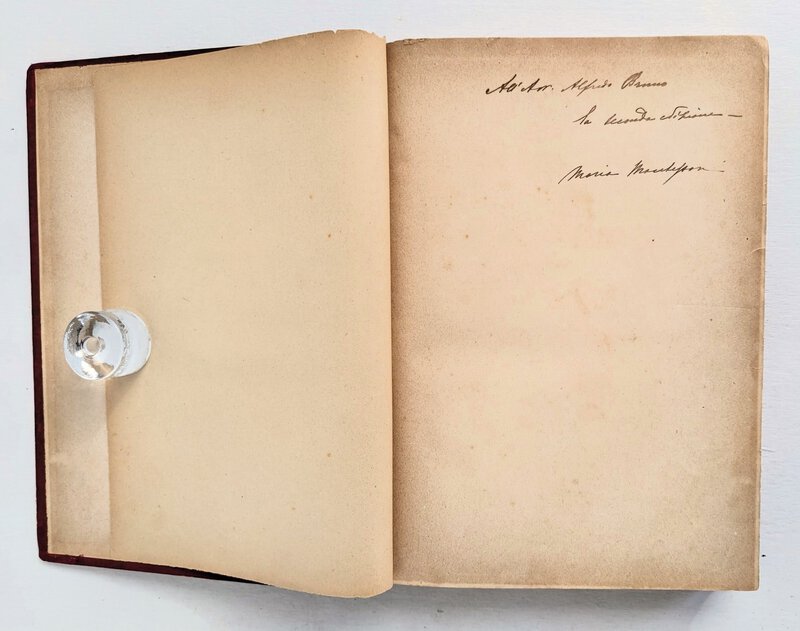 All' Avv. Alfredo Bruno
la seconda edizione —
Maria Montessori